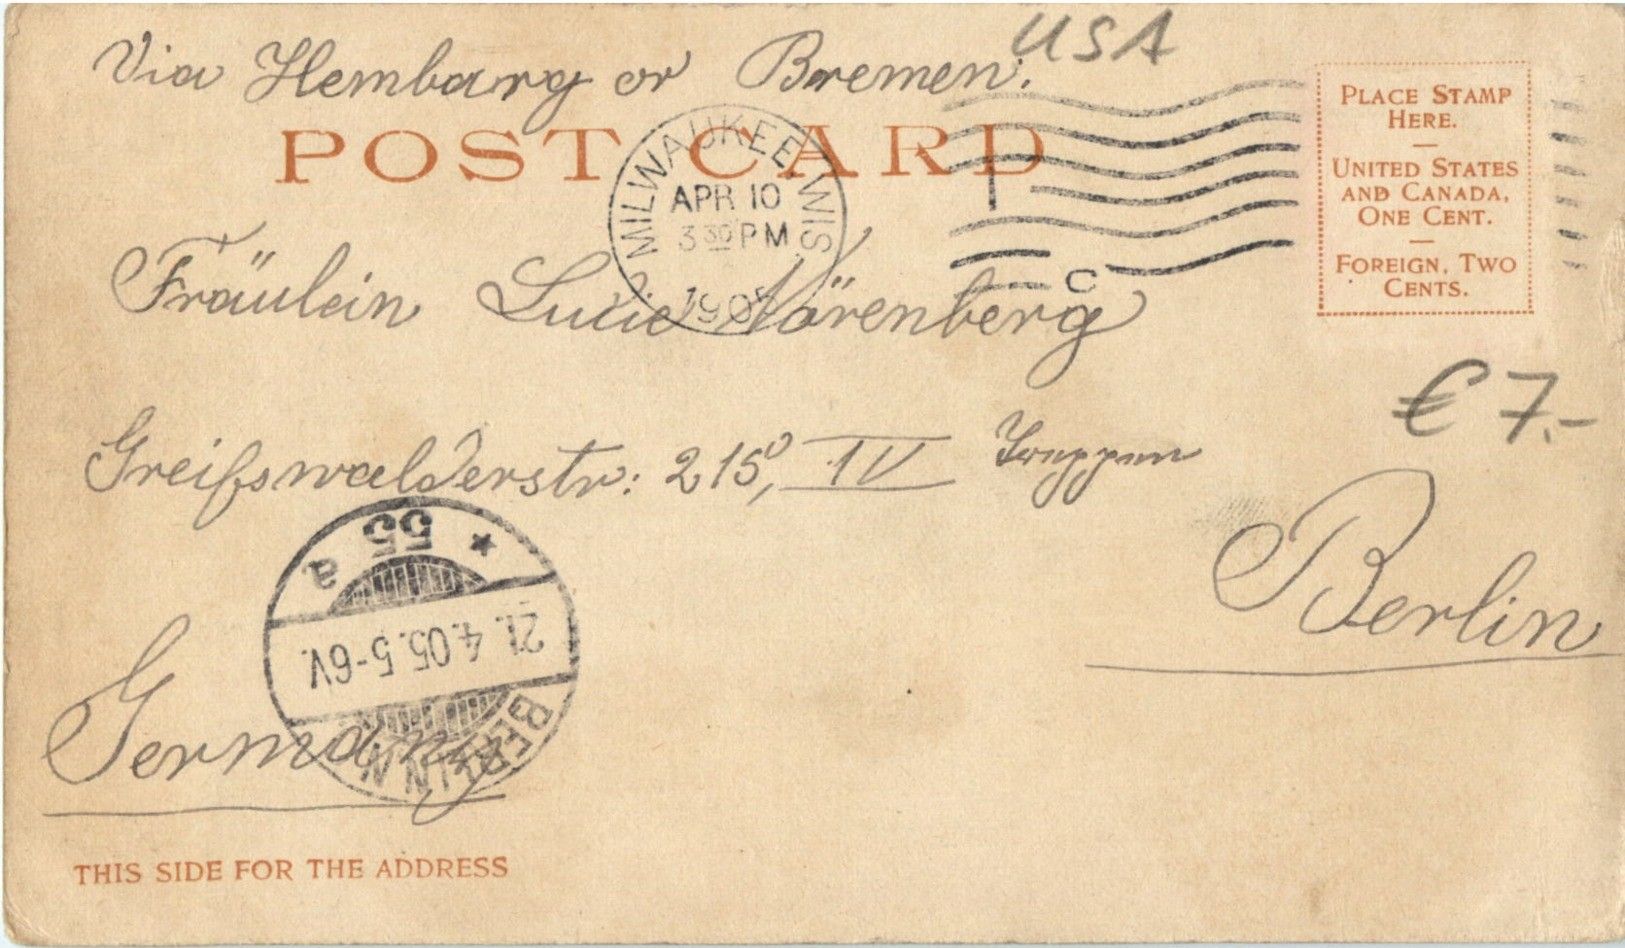 Via Hemburg or Bremen.
USA
POST CARD
MILWAUKEE, WIS.
APR 10
3 30 PM
1905
C
PLACE STAMP
HERE.
—
UNITED STATES
AND CANADA,
ONE CENT.
—
FOREIGN, TWO
CENTS.
Fräulein Lucie Nörenberg
€ 7.-
Greifswalderstr: 215, IV Treppen
Berlin
55
a *
21.4.05.5-6V.
BERLIN N
Germany
THIS SIDE FOR THE ADDRESS